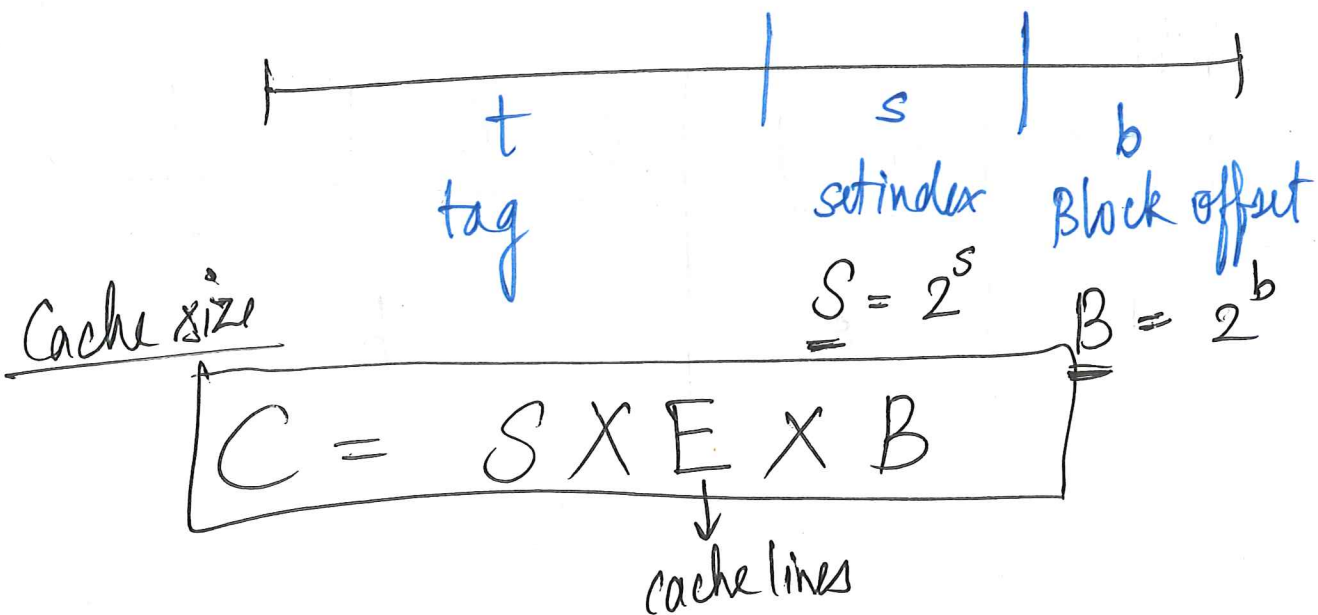 t s b
tag setindex Block offset
S = 2^s B = 2^b
Cache size
C = S X E X B
cache lines